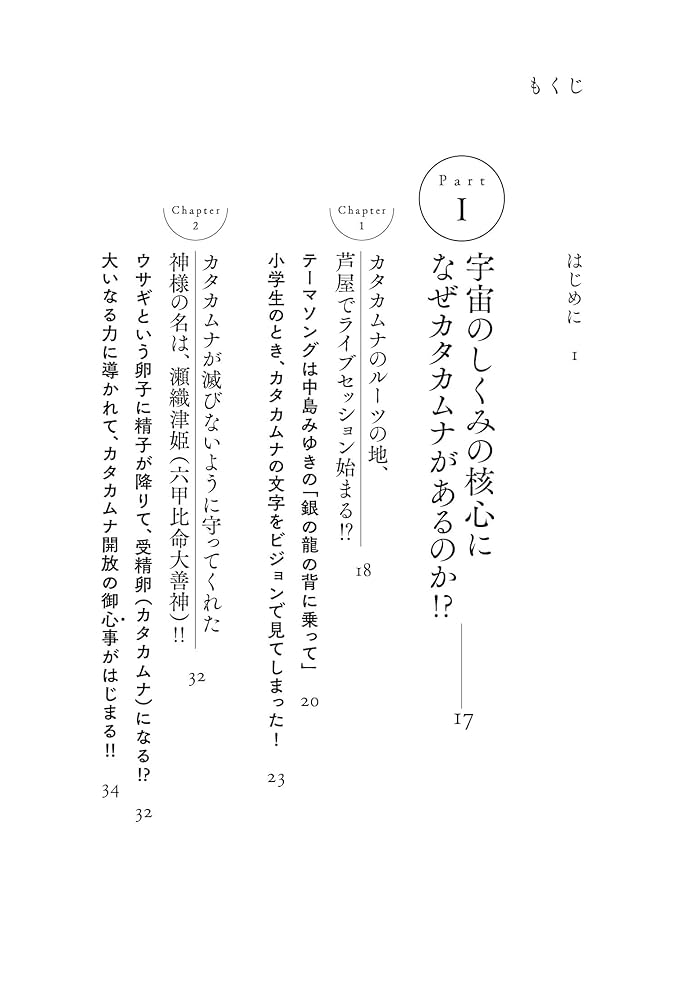 もくじ
はじめに 1
Part
I
宇宙のしくみの核心に
なぜカタカムナがあるのか!? 17
Chapter
1
カタカムナのルーツの地、
芦屋でライブセッション始まる!? 18
テーマソングは中島みゆきの「銀の龍の背に乗って」 20
小学生のとき、カタカムナの文字をビジョンで見てしまった! 23
Chapter
2
カタカムナが滅びないように守ってくれた
神様の名は、瀬織津姫(六甲比命大善神)!! 32
ウサギという卵子に精子が降りて、受精卵(カタカムナ)になる!? 32
大いなる力に導かれて、カタカムナ開放の御心事がはじまる!! 34